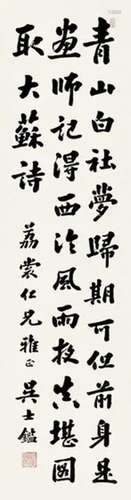 青山白社夢歸期可但前身是
畫師記得西泠風雨夜共堪圖
取大蘇詩
荔裳仁兄雅正 吳士鑑